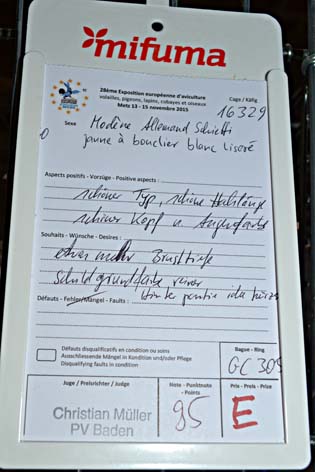 mifuma
28ème Exposition européenne d'aviculture
volailles, pigeons, lapins, cobayes et oiseaux
Metz 13 - 15 novembre 2015
Cage / Käfig
16329
Sexe
Modène Allemand Schietti
jaune à bouclier blanc liseré
Aspects positifs - Vorzüge - Positive aspects :
schöner Typ, schöne Halslänge
schöner Kopf u. Augenfarbe
Souhaits - Wünsche - Desires :
etwas mehr Brusttiefe
Schildgrundfarbe reiner
Défauts - Fehler/Mängel - Faults :
Hinterpartie
Défauts disqualificatifs en condition ou soins
Ausschliessende Mängel in Kondition und/oder Pflege
Disqualifying faults in condition
Bague - Ring
GC 309
Juge / Preisrichter / Judge
Note - Punktnote
- Points
Prix - Preis - Prize
Christian Müller
PV Baden
95
E